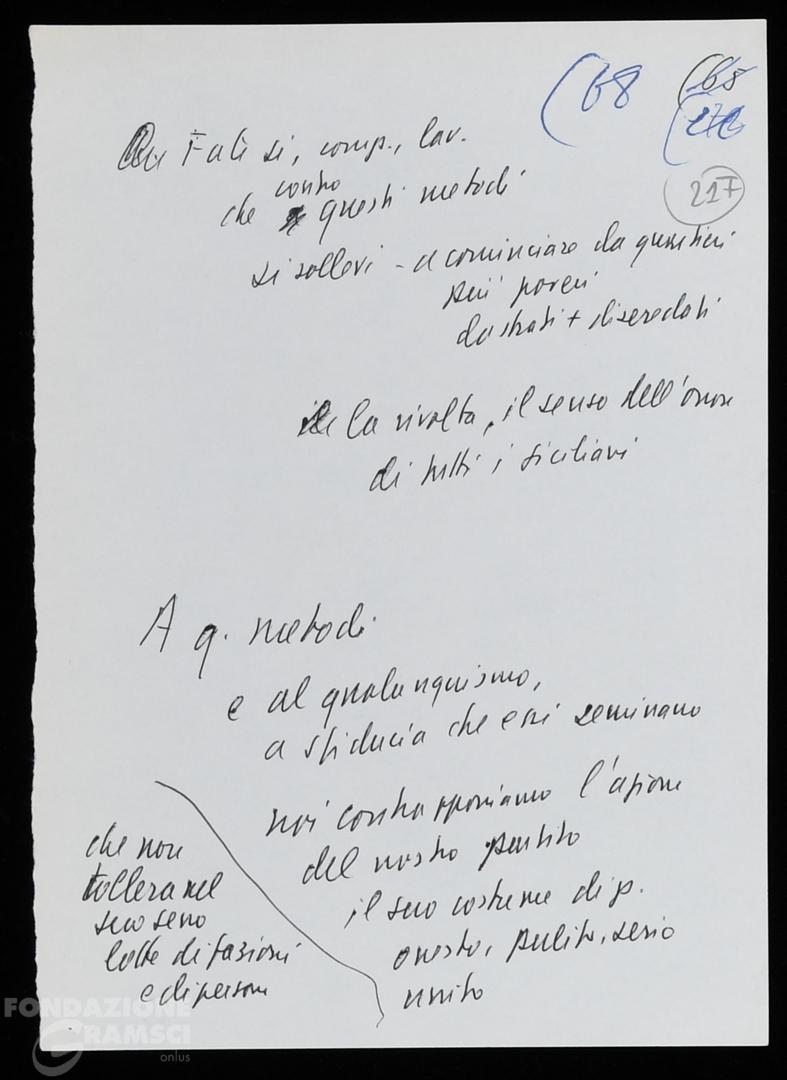 (68
(68
(272
217
Fate sì, comp., lav.
contro
che questi metodi
si sollevi - a cominciare da quartieri
più poveri
da strati + diseredati
la rivolta, il senso dell'onore
di tutti i siciliani
A q. metodi
e al qualunquismo,
a sfiducia che essi seminano
noi contrapponiamo l'azione
del nostro partito
il suo costume di p.
onesto, pulito, serio
unito
che non
tollera nel
suo seno
lotte di fazioni
e di persone
FONDAZIONE
GRAMSCI
onlus